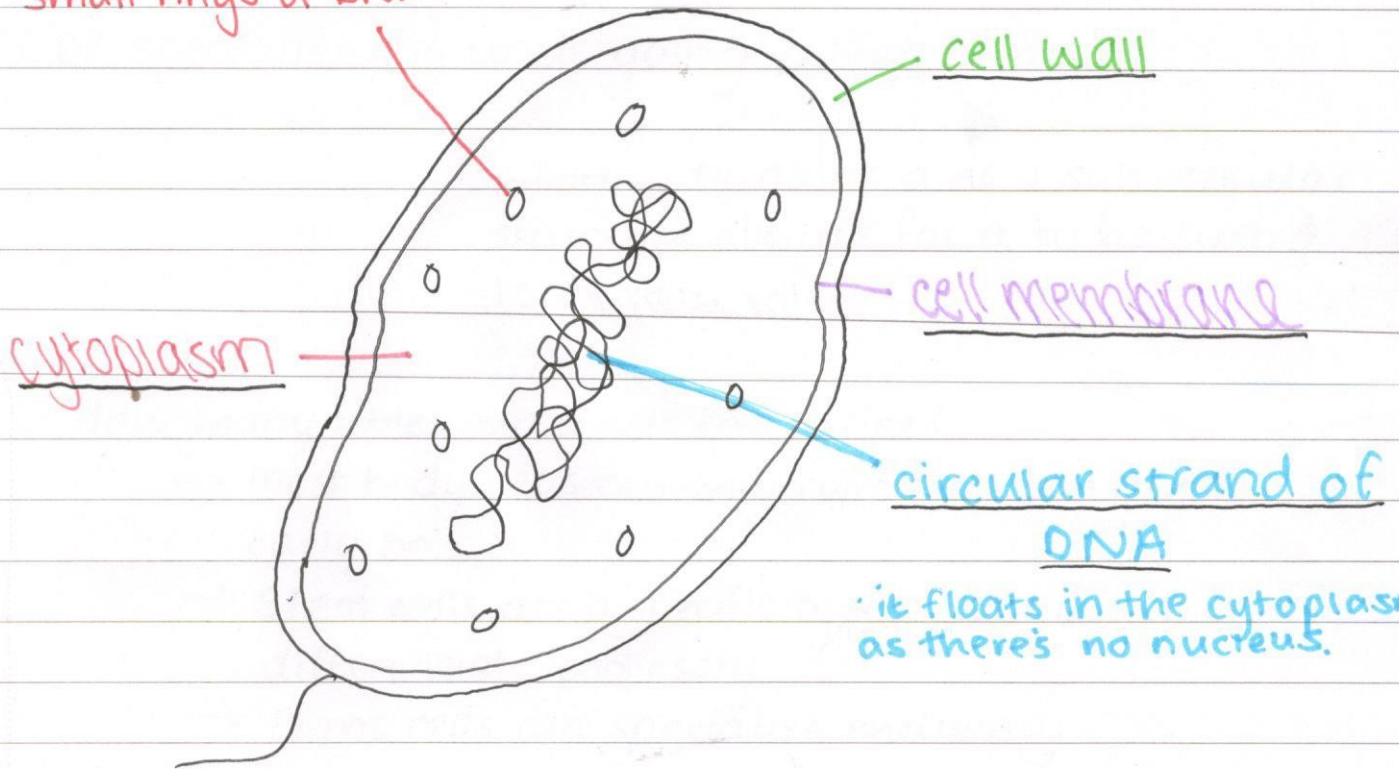 small rings of
cell wall
cell membrane
cytoplasm
circular strand of
DNA
· it floats in the cytoplas
as there's no nucreus.